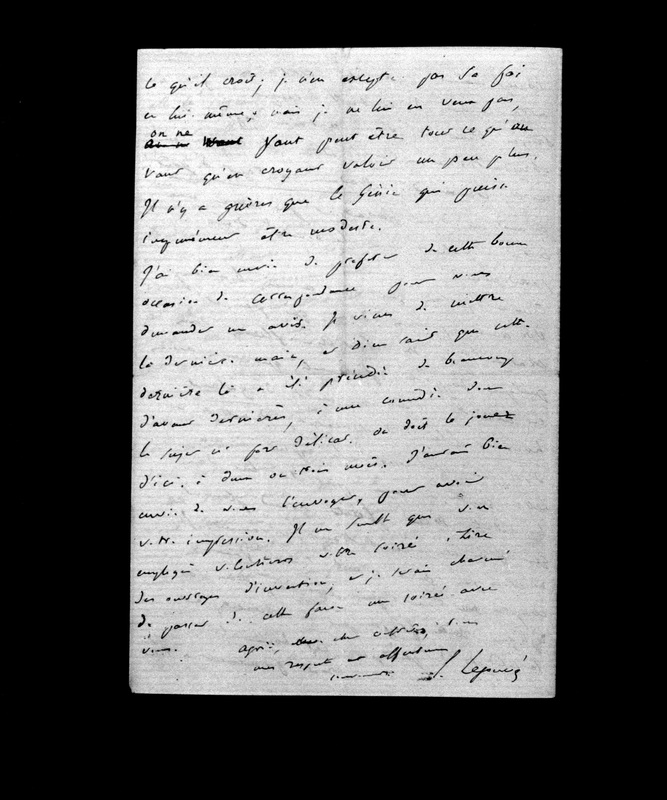 ce qu'il croit; je n'en excepte pas sa foi
en lui même; mais je ne lui en veux pas,
on ne vaut peut être tout ce qu'on
vaut qu'en croyant valoir un peu plus.
Il n'y a guères que le Génie qui puisse
ingénument être modeste.
J'ai bien envie de profiter de cette bonne
occasion de correspondance pour vous
demander un avis. Je viens de mettre
la dernière main, et Dieu sait que cette
dernière là a été précédée de beaucoup
d'avant dernières, à une comédie dont
le sujet est fort délicat. On doit la jouer
d'ici à deux ou trois mois. J'aurais bien
envie de vous l'envoyer, pour avoir
votre impression. Il me semble que vous
employez volontiers votre soirée à lire
des ouvrages d'invention, et je serais charmé
de passer de cette façon une soirée avec
vous. Agréez, cher confrère,
mes respects et affectueux
E. Legouvé